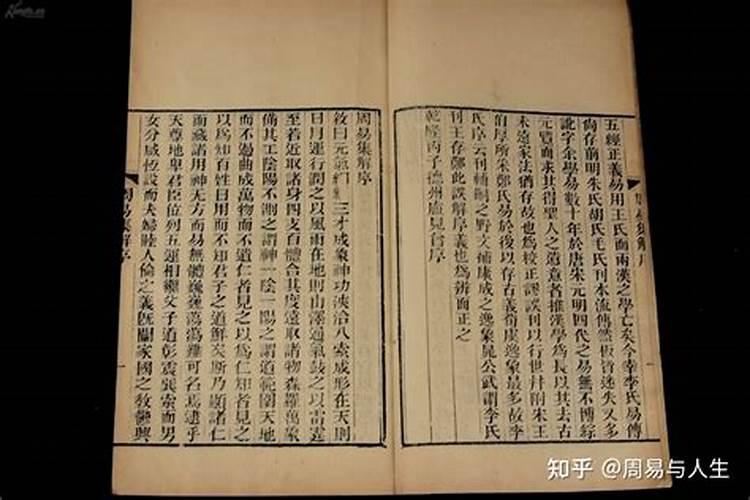 五經正義易用王氏而兩漢之學亡矣今幸李氏易傳
尙存前明朱氏胡氏毛氏刊本流傳然板皆迷失又多
訛字余學易數十年於唐宋元明四代之易無不博綜
元覽而求其得聖人之遺意者推漢學爲長以其去古
未遠家法猶存故也爲校正謬誤刊以行世幷附朱王
伯厚所朱鄭氏易於後以存古義荀虞逸象最多故李
氏序云刊輔嗣之野文補康成之逸象晁公武謂李氏
刊王存鄭此誤解序義也爲辨而正之
乾隆丙子德州盧見曾序
周易集解序
敘曰元氣絪縕三才成象神功浹洽八索成形在天則
日月運行潤之以風雨在地則山澤通氣鼓之以雷霆
至若近取諸身四支百體合其度遠取諸物森羅萬象
備其工陰陽不測之謂神一陰一陽之謂道範圍天地
而不過曲成萬物而不遺仁者見之以爲仁知者見之
以爲知百姓日用而不知君子之道鮮矣斯乃顯諸仁
而藏諸用神无方而易無體巍巍蕩蕩難可名焉逮乎
天尊地卑君臣位列五運相繼父子道彰震巽索而男
女分咸恆設而夫婦睦人倫之義旣闡家國之敎鬱興
周易集解序
知乎 @周易与人生